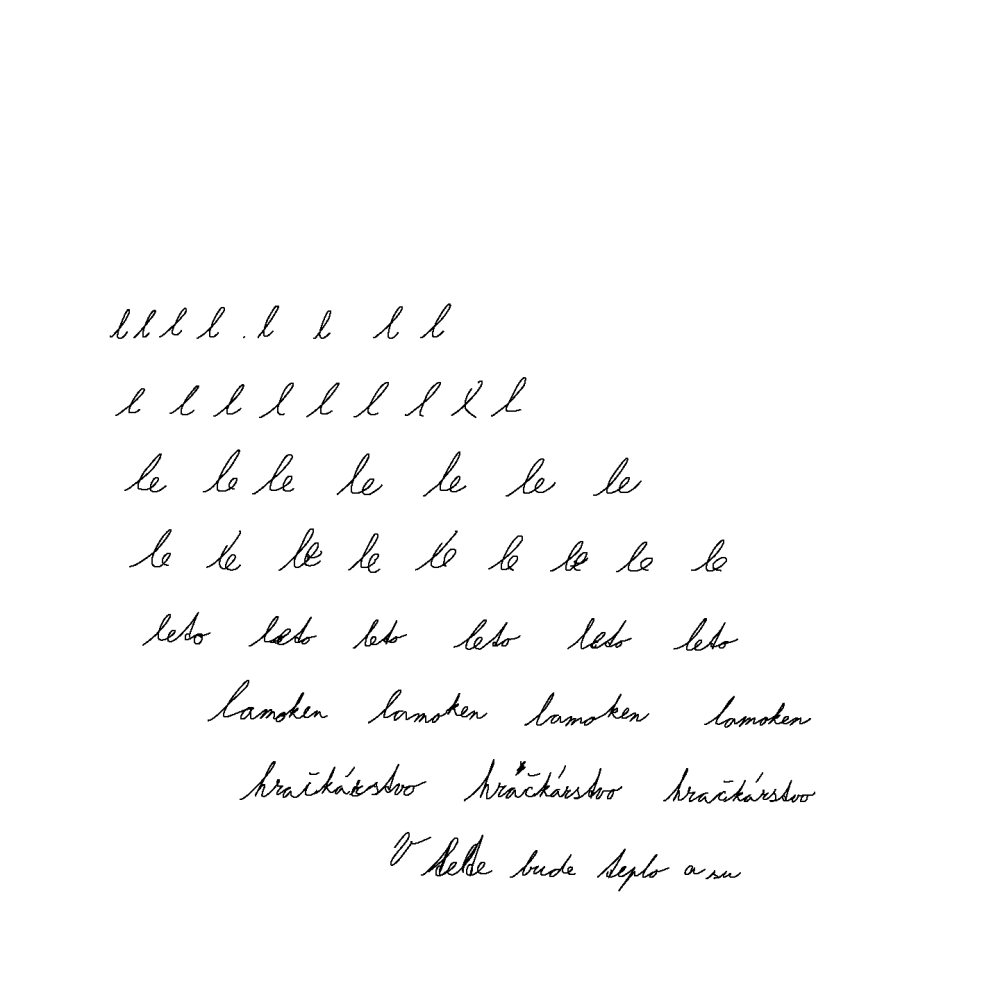 l l l l . l l l l
l l l l l l l l l
le le le le le le le
le le le le le le le le le
leto leto leto leto leto leto
lamoken lamoken lamoken lamoken
hračkárstvo hračkárstvo hračkárstvo
V lete bude teplo a su